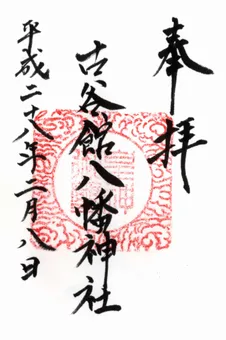 奉拝
古谷館八幡神社
平成二十八年二月八日